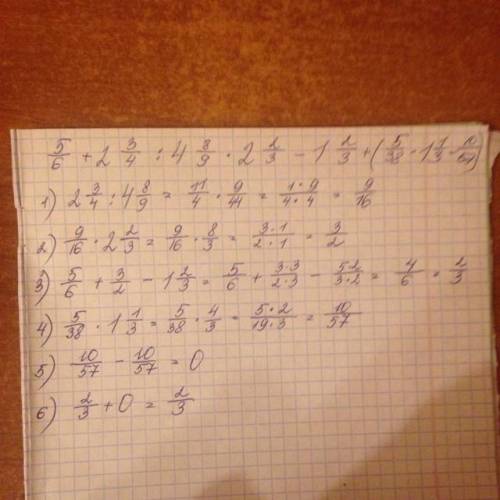 5/6 + 2 3/4 : 4 8/9 · 2 2/3 - 1 2/3 + (5/38 · 1 1/3 - 10/57)
1) 2 3/4 : 4 8/9 = 11/4 · 9/44 = 1·9/4·4 = 9/16
2) 9/16 · 2 2/3 = 9/16 · 8/3 = 3·1/2·1 = 3/2
3) 5/6 + 3/2 - 1 2/3 = 5/6 + 3·3/2·3 - 5·2/3·2 = 4/6 = 2/3
4) 5/38 · 1 1/3 = 5/38 · 4/3 = 5·2/19·3 = 10/57
5) 10/57 - 10/57 = 0
6) 2/3 + 0 = 2/3